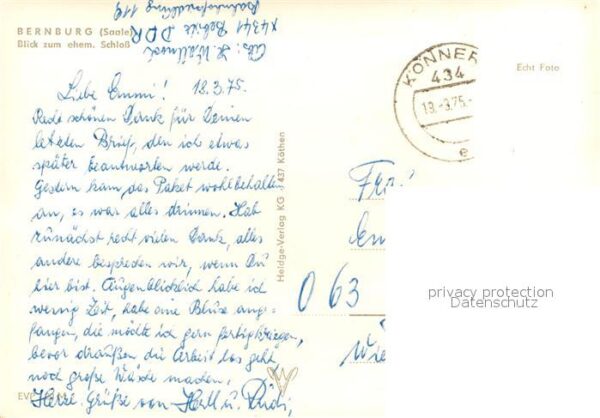 BERNBURG (Saale)
Blick zum ehem. Schloß
Abs:
X4341 DDR
Echt Foto
KÖNNER
434
19.-3.75.-
e
Liebe Emmi! 18.3.75.
Recht schönen Dank für Deinen
letzten Brief, den ich etwas
später beantworten werde.
Gestern kam das Paket wohlbehalten
an, es war alles drinnen. Hab
zunächst recht vielen Dank, alles
andere besprechen wir, wenn Du
hier bist. Augenblicklich habe ich
wenig Zeit, habe eine Bluse ange-
fangen, die möchte ich gern fertigkriegen,
bevor draußen die Arbeit los geht,
noch große Wäsche machen.
Herzl. Grüße von Hell u. Rudi,
Heldge-Verlag KG 437 Köthen
063
privacy protection
Datenschutz